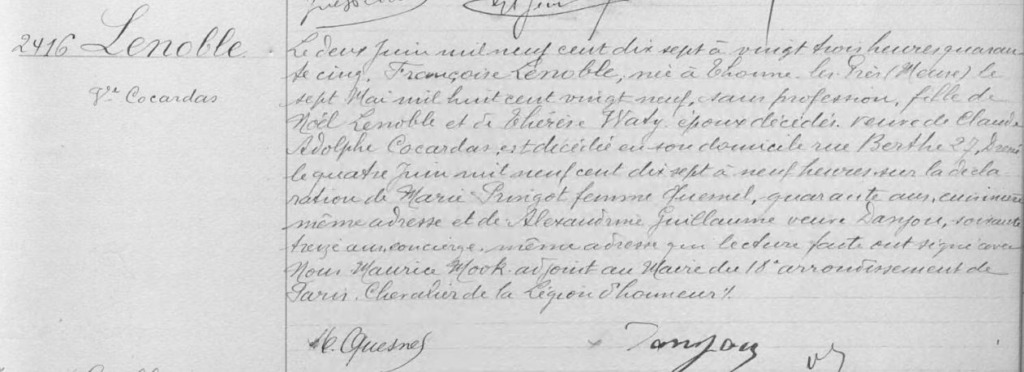 2416 Lenoble
Vve Cocardas
Le deux Juin mil neuf cent dix sept à vingt trois heures quaran
te cinq, Françoise Lenoble, née à Thonne les Près (Meuse) le
sept Mai mil huit cent vingt neuf, sans profession, fille de
Noël Lenoble et de Thérèse Waty époux décédés. veuve de Claude
Adolphe Cocardas, est décédée en son domicile rue Berthe 27, Dressé
le quatre Juin mil neuf cent dix sept à neuf heures sur la décla
ration de Marie femme Quesnel, quarante ans, cuisinière
même adresse et de Alexandrine Guillaume veuve Danjou, soixante
treize ans, concierge, même adresse qui lecture faite ont signé avec
Nous Maurice Mook adjoint au Maire du 18e arrondissement de
Paris. Chevalier de la Légion d'honneur ./.
M. Quesnel
Danjou